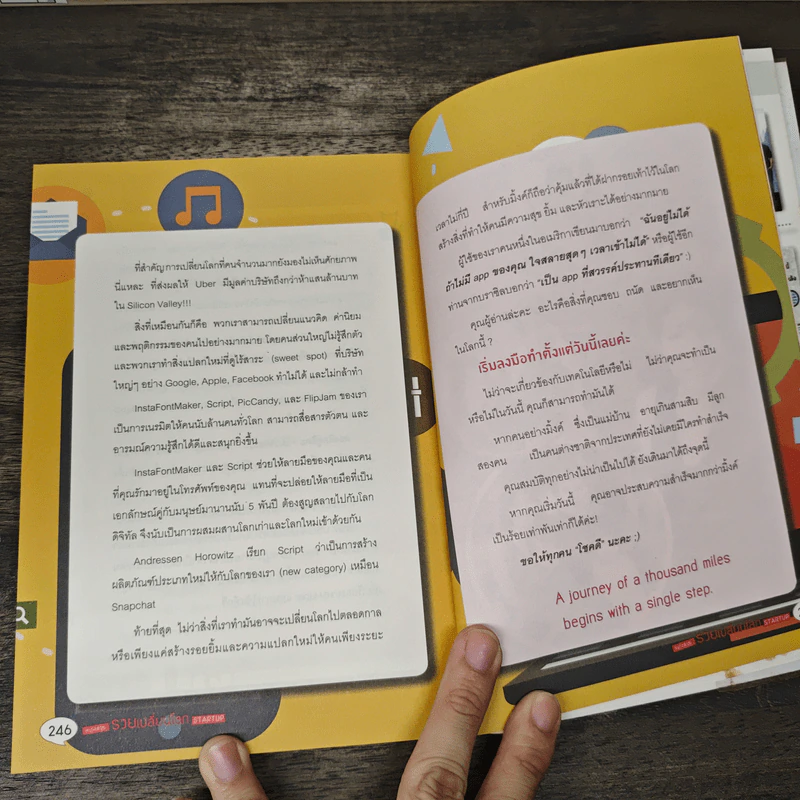 ที่สำคัญ การเปลี่ยนโลกที่คนจำนวนมากยังมองไม่เห็นศักยภาพ
นี่แหละ ที่ส่งผลให้ Uber มีมูลค่าบริษัทถึงกว่าห้าแสนล้านบาท
ใน Silicon Valley!!!
สิ่งที่เหมือนกันก็คือ พวกเราสามารถเปลี่ยนแนวคิด ค่านิยม
และพฤติกรรมของคนไปอย่างมากมาย โดยคนส่วนใหญ่ไม่รู้สึกตัว
และพวกเราทำสิ่งแปลกใหม่ที่ดูไร้สาระ (sweet spot) ที่บริษัท
ใหญ่ๆ อย่าง Google, Apple, Facebook ทำไม่ได้ และไม่กล้าทำ
InstaFontMaker, Script, PicCandy, และ FlipJam ของเรา
เป็นการเนรมิตให้คนนับล้านคนทั่วโลก สามารถสื่อสารตัวตน และ
อารมณ์ความรู้สึกได้ดีและสนุกยิ่งขึ้น
InstaFontMaker และ Script ช่วยให้ลายมือของคุณและคน
ที่คุณรักมาอยู่ในโทรศัพท์ของคุณ แทนที่จะปล่อยให้ลายมือที่เป็น
เอกลักษณ์คู่กับมนุษย์มานานนับ 5 พันปี ต้องสูญสลายไปกับโลก
ดิจิทัล จึงนับเป็นการผสมผสานโลกเก่าและโลกใหม่เข้าด้วยกัน
Andressen Horowitz เรียก Script ว่าเป็นการสร้าง
ผลิตภัณฑ์ประเภทใหม่ให้กับโลกของเรา (new category) เหมือน
Snapchat
ท้ายที่สุด ไม่ว่าสิ่งที่เราทำมันอาจจะเปลี่ยนโลกไปตลอดกาล
หรือเพียงแค่สร้างรอยยิ้มและความแปลกใหม่ให้คนเพียงระยะ
246
รวยเปลี่ยนโลก STARTUP
เวลาไม่กี่ปี สำหรับมิ้งค์ก็ถือว่าคุ้มแล้วที่ได้ฝากรอยเท้าไว้ในโลก
สร้างสิ่งที่ทำให้คนมีความสุข ยิ้ม และหัวเราะได้อย่างมากมาย
ผู้ใช้ของเราคนหนึ่งในอเมริกาเขียนมาบอกว่า "ฉันอยู่ไม่ได้
ถ้าไม่มี app ของคุณ ใจสลายสุดๆ เวลาเข้าไม่ได้" หรือผู้ใช้อีก
ท่านจากบราซิลบอกว่า "เป็น app ที่สวรรค์ประทานทีเดียว" :)
คุณผู้อ่านล่ะคะ อะไรคือสิ่งที่คุณชอบ ถนัด และอยากเห็น
ในโลกนี้ ?
เริ่มลงมือทำตั้งแต่วันนี้เลยค่ะ
ไม่ว่าจะเกี่ยวข้องกับเทคโนโลยีหรือไม่ ไม่ว่าคุณจะทำเป็น
หรือไม่ในวันนี้ คุณก็สามารถทำมันได้
หากคนอย่างมิ้งค์ ซึ่งเป็นแม่บ้าน อายุเกินสามสิบ มีลูก
สองคน เป็นคนต่างชาติจากประเทศที่ยังไม่เคยมีใครทำสำเร็จ
คุณสมบัติทุกอย่างไม่น่าเป็นไปได้ ยังเดินมาได้ถึงจุดนี้
หากคุณเริ่มวันนี้ คุณอาจประสบความสำเร็จมากกว่ามิ้งค์
เป็นร้อยเท่าพันเท่าก็ได้ค่ะ!
ขอให้ทุกคน "โชคดี" นะคะ ;)
A journey of a thousand miles
begins with a single step.
รวยเปลี่ยนโลก STARTUP